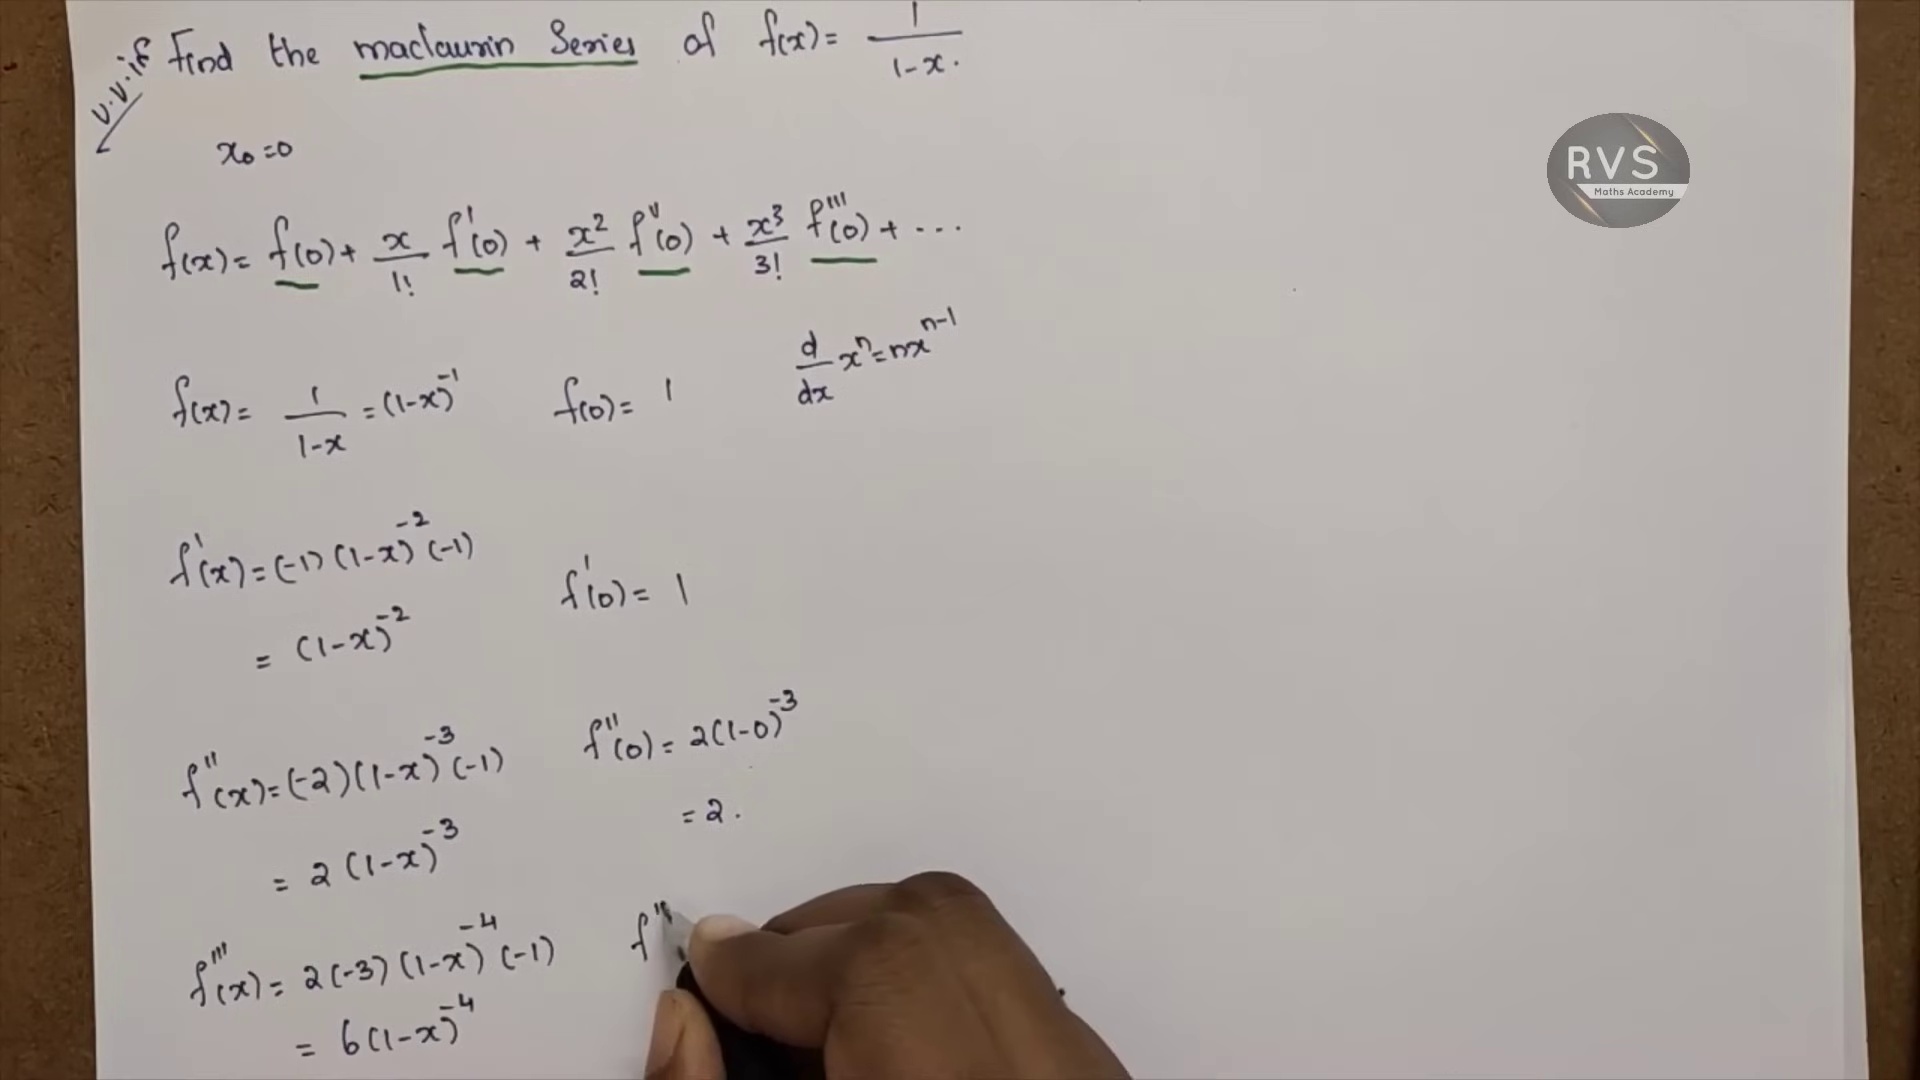 v.v.if Find the maclaurin Series of f(x) = 1/(1-x).
x₀ = 0
RVS
Maths Academy
f(x) = f(0) + x/1! f'(0) + x²/2! f''(0) + x³/3! f'''(0) + ...
d/dx xⁿ = nxⁿ⁻¹
f(x) = 1/(1-x) = (1-x)⁻¹ f(0) = 1
f'(x) = (-1)(1-x)⁻²(-1)
f'(0) = 1
= (1-x)⁻²
f''(x) = (-2)(1-x)⁻³(-1) f''(0) = 2(1-0)⁻³
= 2.
= 2(1-x)⁻³
f'''(x) = 2(-3)(1-x)⁻⁴(-1) f'''
= 6(1-x)⁻⁴